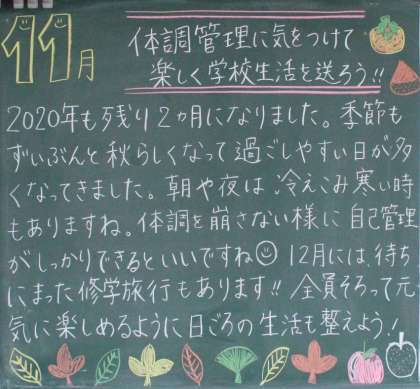 11月
体調管理に気をつけて
楽しく学校生活を送ろう!!
2020年も残り2ヵ月になりました。季節も
ずいぶんと秋らしくなって過ごしやすい日が多
くなってきました。朝や夜は冷えこみ寒い時
もありますね。体調を崩さない様に自己管理
がしっかりできるといいですね☺ 12月には、待ち
にまった修学旅行もあります!! 全員そろって元
気に楽しめるように日ごろの生活も整えよう!!